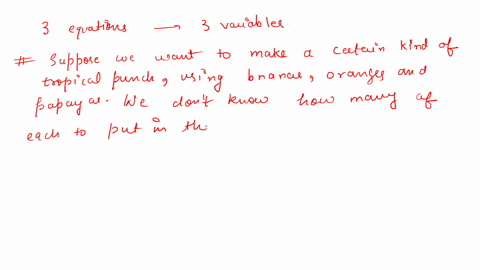 3 equations → 3 variables
# Suppose we want to make a certain kind of
tropical punch, using bnanas, oranges and
papayas. We don't know how many of
each to put in th